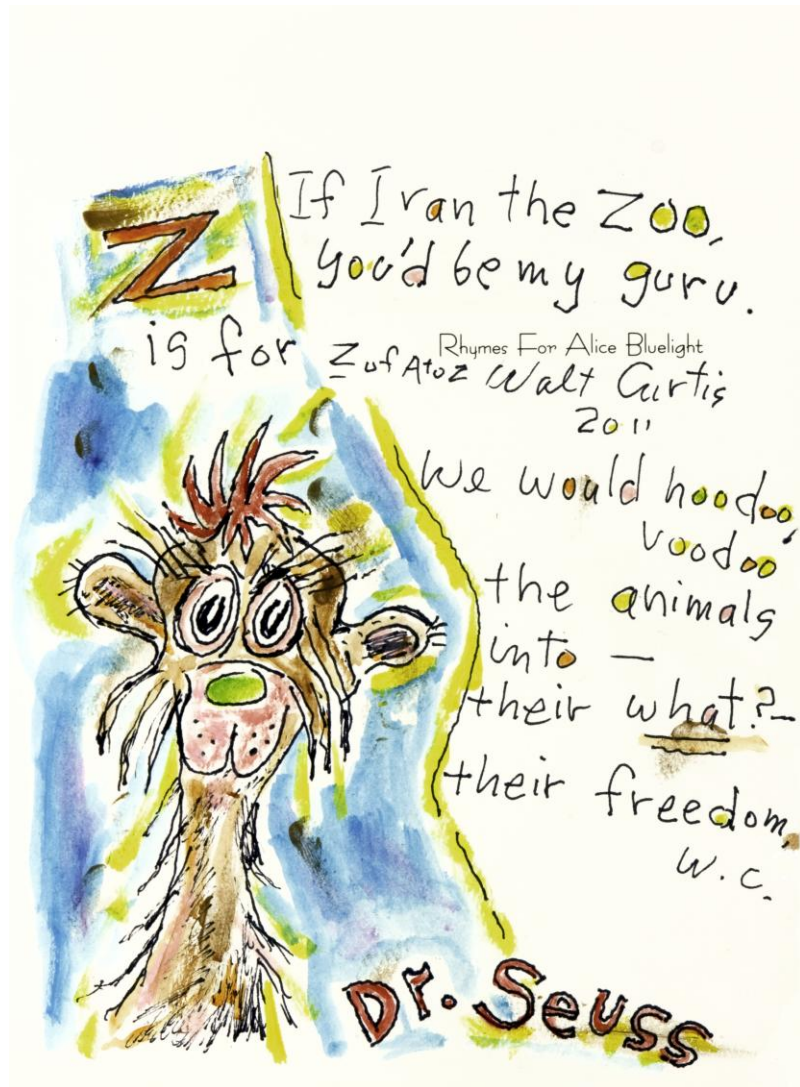 Z
If I ran the Zoo,
you'd be my guru.
is for
Rhymes For Alice Bluelight
Z of A to Z Walt Curtis
2011
We would hoodoo,
voodoo
the animals
into —
their what?—
their freedom,
W.C.
Dr. Seuss